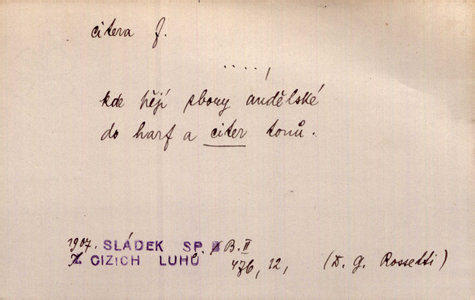 citera f.
....,
kde pějí sbory andělské
do harf a citer tonů.
1907. SLÁDEK SP. B. II
Z CIZICH LUHŮ 476, 12, (D. G. Rossetti)